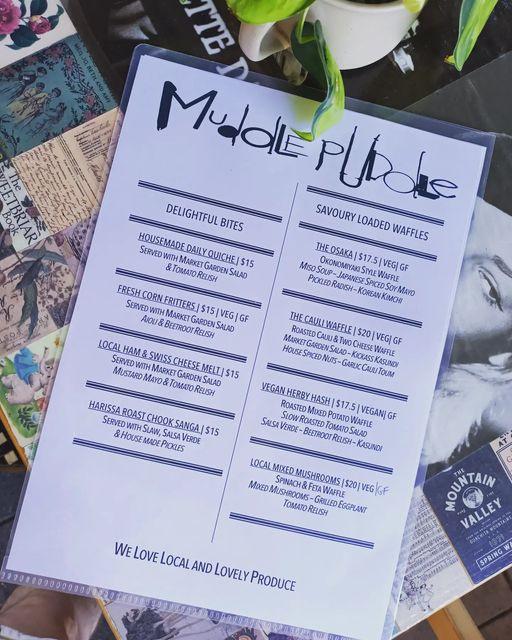 Muddle Puddle
DELIGHTFUL BITES
HOUSEMADE DAILY QUICHE | $15
SERVED WITH MARKET GARDEN SALAD
& TOMATO RELISH
FRESH CORN FRITTERS | $15 | VEG | GF
SERVED WITH MARKET GARDEN SALAD
AIOLI & BEETROOT RELISH
LOCAL HAM & SWISS CHEESE MELT | $15
SERVED WITH MARKET GARDEN SALAD
MUSTARD MAYO & TOMATO RELISH
HARISSA ROAST CHOOK SANGA | $15
SERVED WITH SLAW, SALSA VERDE
& HOUSE MADE PICKLES
SAVOURY LOADED WAFFLES
THE OSAKA | $17.5 | VEG| GF
OKONOMIYAKI STYLE WAFFLE
MISO SOUP – JAPANESE SPICED SOY MAYO
PICKLED RADISH – KOREAN KIMCHI
THE CAULI WAFFLE | $20 | VEG| GF
ROASTED CAULI & TWO CHEESE WAFFLE
MARKET GARDEN SALAD – KICKASS KASUNDI
HOUSE SPICED NUTS – GARLIC CAULI TOUM
VEGAN HERBY HASH | $17.5 | VEGAN| GF
ROASTED MIXED POTATO WAFFLE
SLOW ROASTED TOMATO SALAD
SALSA VERDE – BEETROOT RELISH – KASUNDI
LOCAL MIXED MUSHROOMS | $20 | VEG |GF
SPINACH & FETA WAFFLE
MIXED MUSHROOMS – GRILLED EGGPLANT
TOMATO RELISH
WE LOVE LOCAL AND LOVELY PRODUCE
THE
MOUNTAIN
VALLEY
SPRING WA